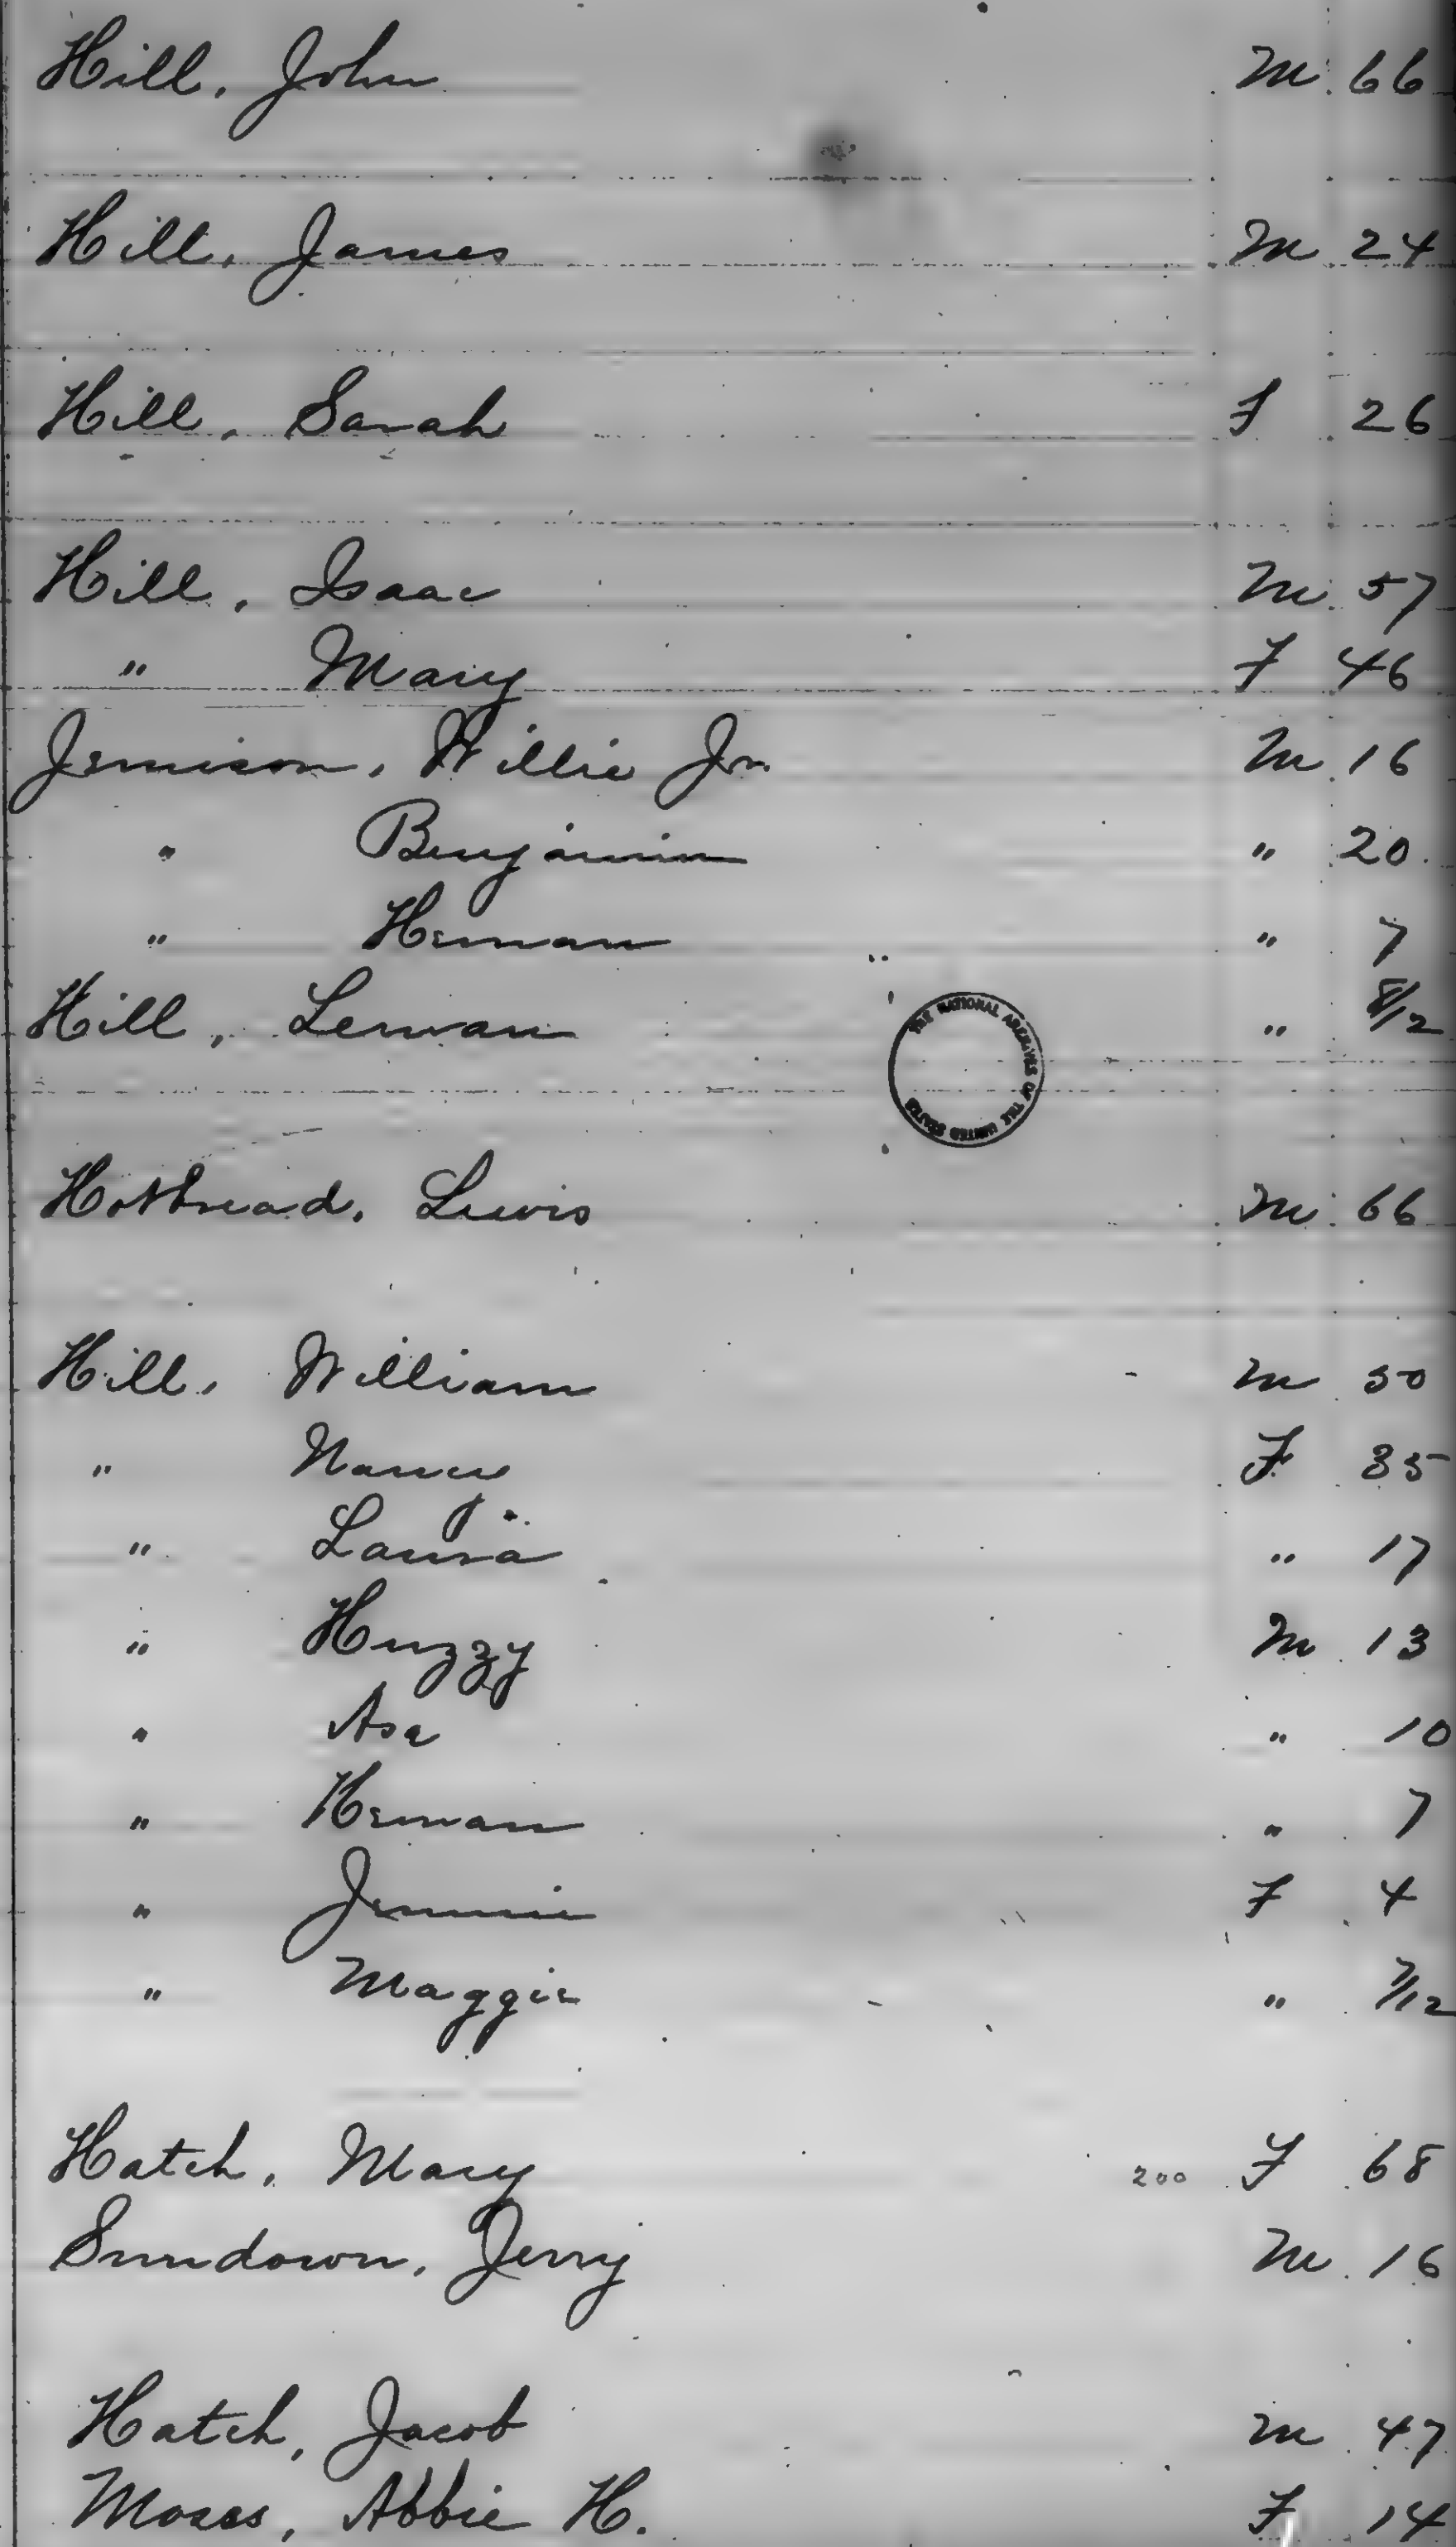 Hill, John M 66
Hill, James M 24
Hill, Sarah F 26
Hill, Isaac M 57
" Mary F 46
Jemison, Willie Jr. M 16
" Benjamin " 20
" Heman " 7
Hill, Leman " 8/12
THE NATIONAL ARCHIVES OF THE UNITED STATES
Hotbread, Lewis M 66
Hill, William M 50
" Nancy F 35
" Laura " 17
" Huzzy M 13
" Asa " 10
" Heman " 7
" Jennie F 4
" Maggie " 7/12
Hatch, Mary 200 F 68
Sundown, Jerry M 16
Hatch, Jacob M 47
Moses, Abbie H. F 14